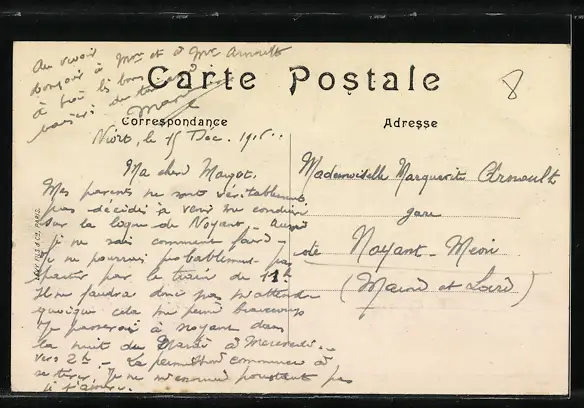 Au revoir
bonjour à Mr et à Mme Arnoult
à toi les bons
baisers du
Carte Postale
Correspondance
Adresse
8
Niort, le 15 Déc. 1915
Ma chère Margot,
Mes parents ne sont véritablement
pas décidés à venir me conduire
sur la ligne de Noyant - aussi
je ne sais comment faire -
Je ne pourrai probablement pas
partir par le train de 11h
Il ne faudra donc pas m'attendre
quoique cela me peine beaucoup
Je passerai à Noyant dans
la nuit du Mardi à Mercredi
vers 2h - La permission commence à
se tirer. Je ne m'ennuie pourtant pas
Mademoiselle Marguerite Arnoult
gare
de Noyant-Méon
(Maine et Loire)